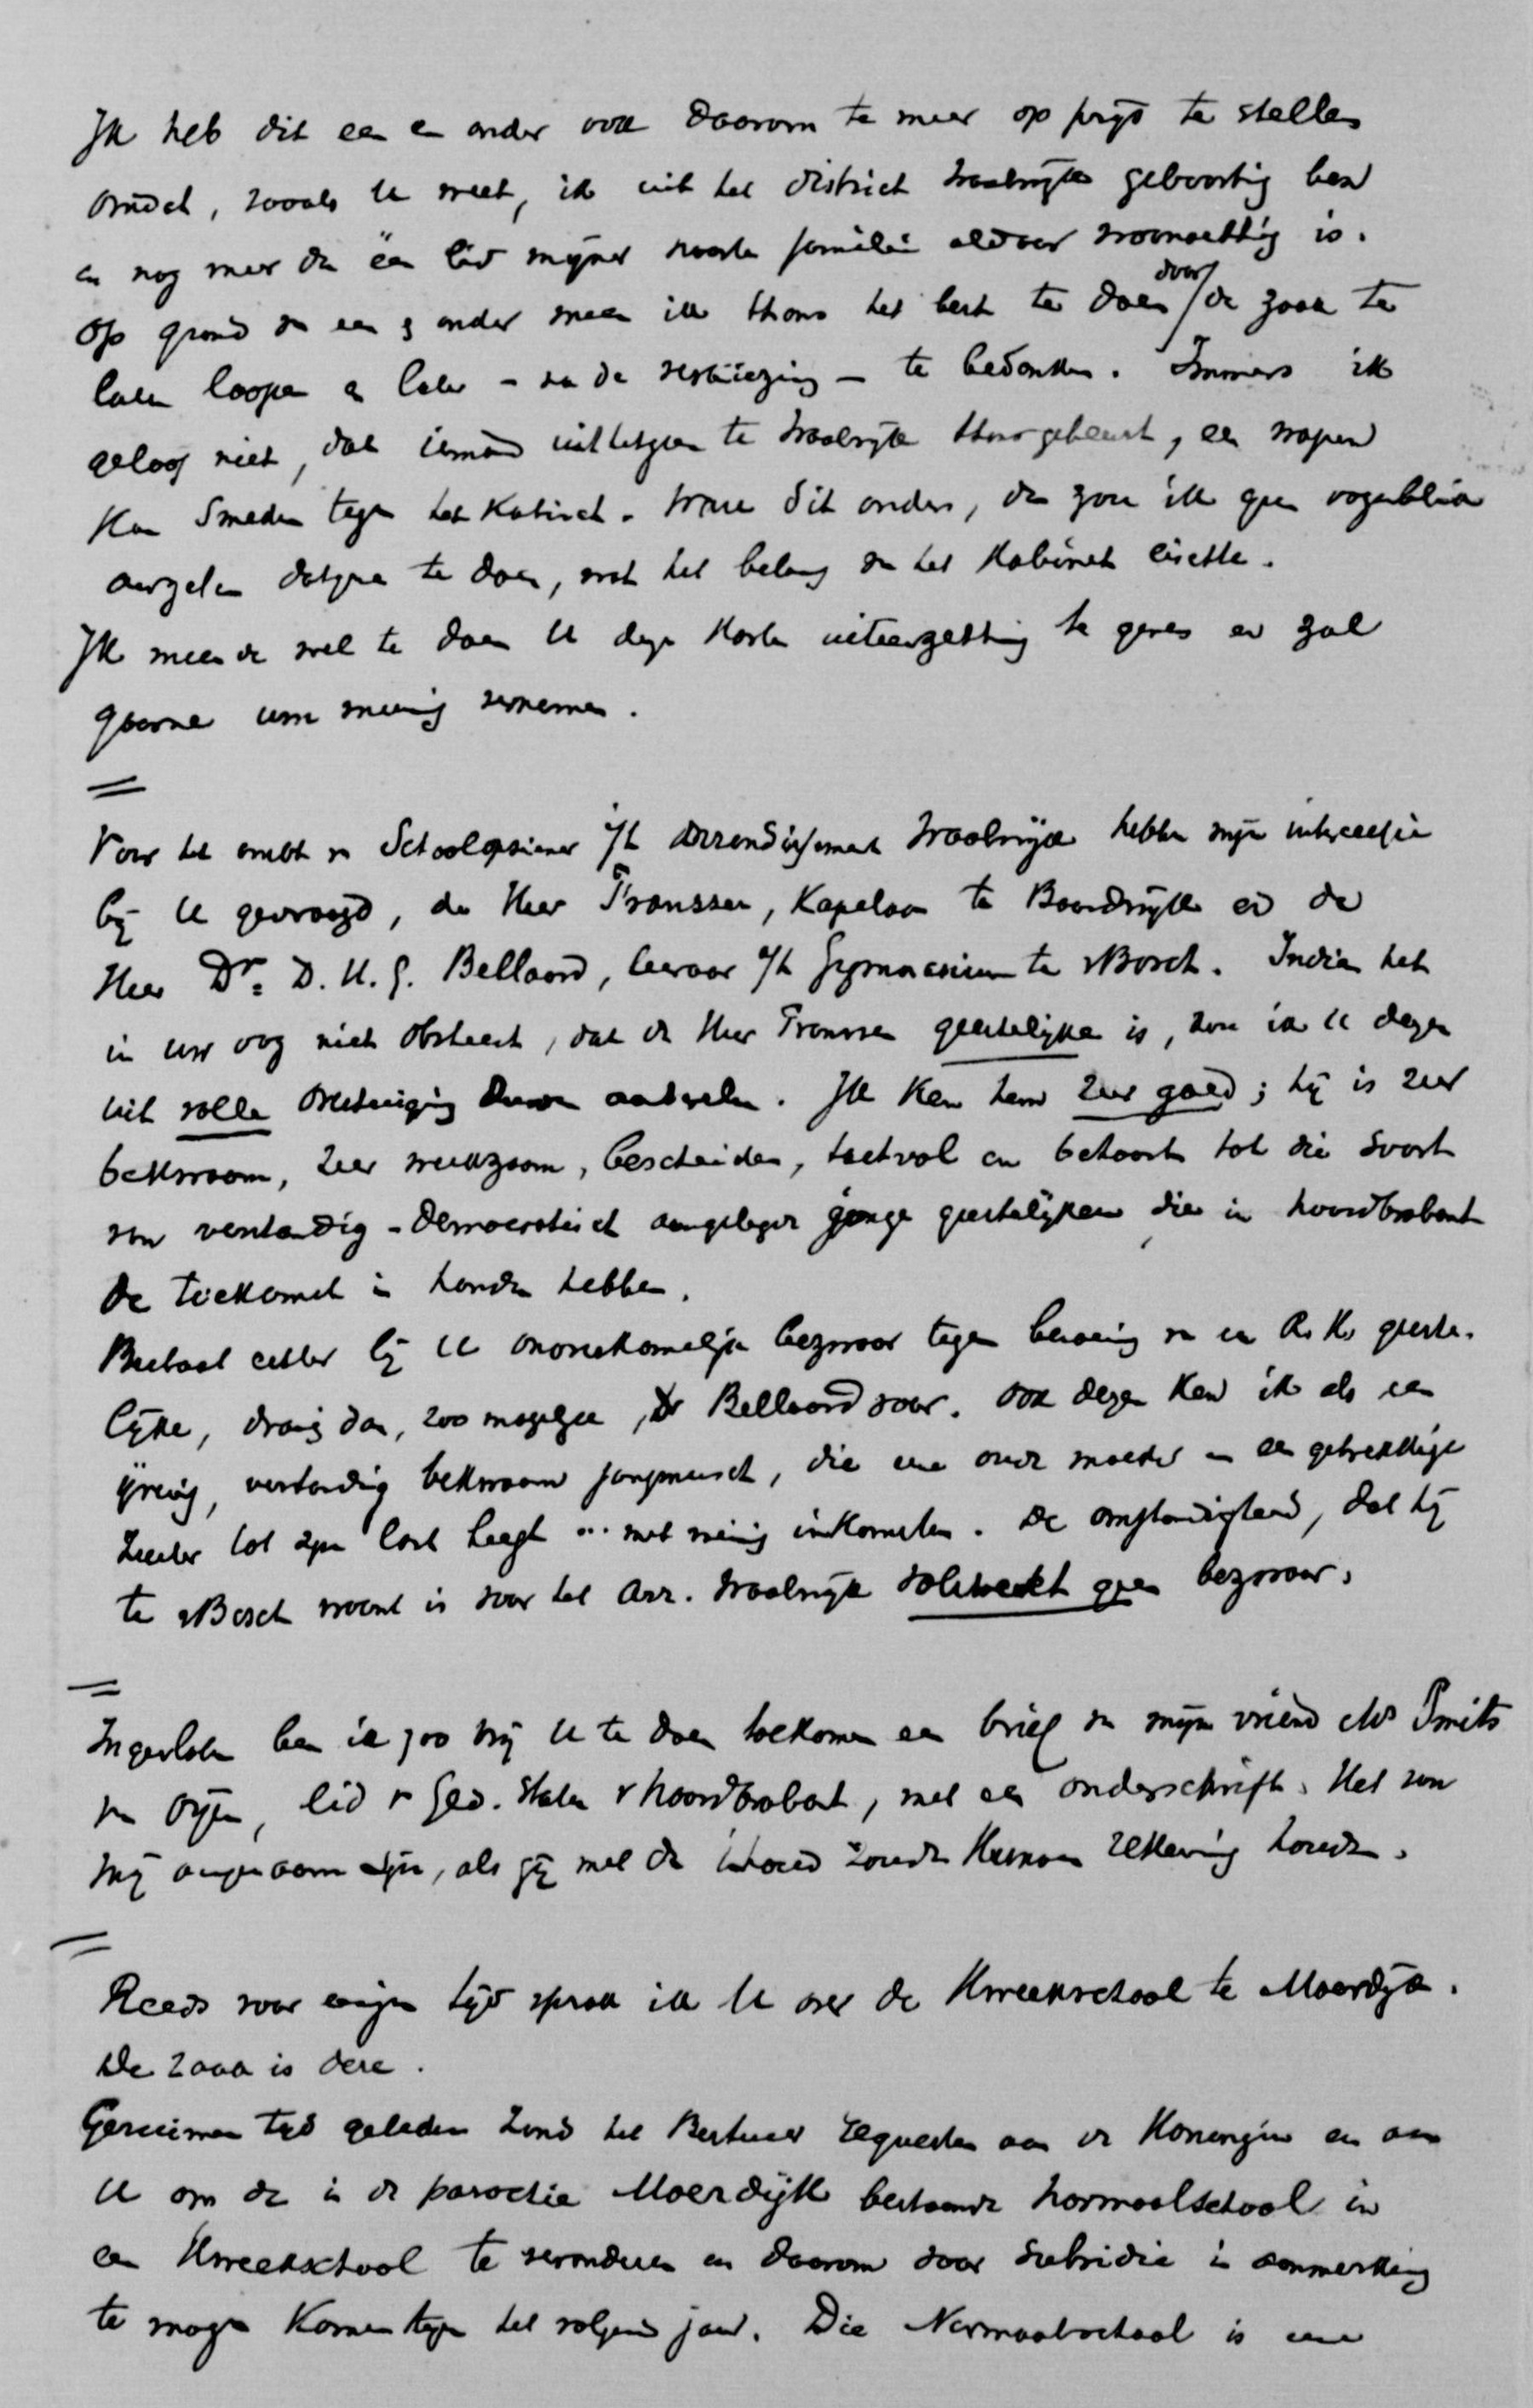 Ik heb dit een en ander ook daarom te meer op prijs te stellen
omdat, zooals U weet, ik uit het district Waalwijk geboortig ben
en nog meer dan één lid mijner naaste familie aldaar woonachtig is.
Op grond van een & ander meen ik thans het best te doen door de zaak te
laten loopen en later – na de verkiezing – te bedanken. Immers ik
geloof niet, dat iemand uit hetgeen te Waalwijk thans gebeurt, een wapen
kan smeden tegen het Kabinet. Ware dit anders, dan zou ik geen oogenblik
aarzelen datgene te doen, wat het belang van het Kabinet eischte.
Ik meende wel te doen U deze korte uiteenzetting te geven en zal
gaarne uw meening vernemen.
=
Voor het ambt van Schoolopziener i/h Arrondissement Waalwijk hebben mijn intercessie
bij U gevraagd, de Heer Franssen, Kapelaan te Baardwijk en de
Heer Dr. D. H. G. Bellaard, leeraar a/h Gymnasium te 'sBosch. Indien het
in uw oog niet obsteert, dat de Heer Franssen geestelijke is, zou ik U dezen
uit volle overtuiging durven aanbevelen. Ik ken hem zeer goed; hij is zeer
bekwaam, zeer werkzaam, bescheiden, tactvol en behoort tot die soort
van verstandig-democratisch aangelegde jonge geestelijken die in Noordbrabant
de toekomst in handen hebben.
Bestaat echter bij U onoverkomelijk bezwaar tegen benoeming van een R. K. geeste-
lijke, draag dan, zoo mogelijk, Dr Bellaard voor. Ook dezen ken ik als een
ijverig, verstandig bekwaam jongmensch, die eene oude moeder en een gebrekkige
zuster tot zijn last heeft ... met weinig inkomsten. De omstandigheid, dat hij
te 'sBosch woont is voor het Arr. Waalwijk volstrekt geen bezwaar.
=
Ingesloten ben ik zoo vrij U te doen toekomen een brief van mijn vriend Mr Smits
van Oyen, lid v. Ged. Staten v Noordbrabant, met een onderschrift. Het zou
mij aangenaam zijn, als gij met de inhoud zoudt kunnen rekening houden.
=
Reeds voor eenigen tijd sprak ik U over de Kweekschool te Moerdijk.
De zaak is deze.
Geruimen tijd geleden zond het Bestuur requesten aan de Koningin en aan
U om de in de parochie Moerdijk bestaande Normaalschool in
een Kweekschool te veranderen en daarom voor subsidie in aanmerking
te mogen komen tegen het volgend jaar. Die Normaalschool is eene